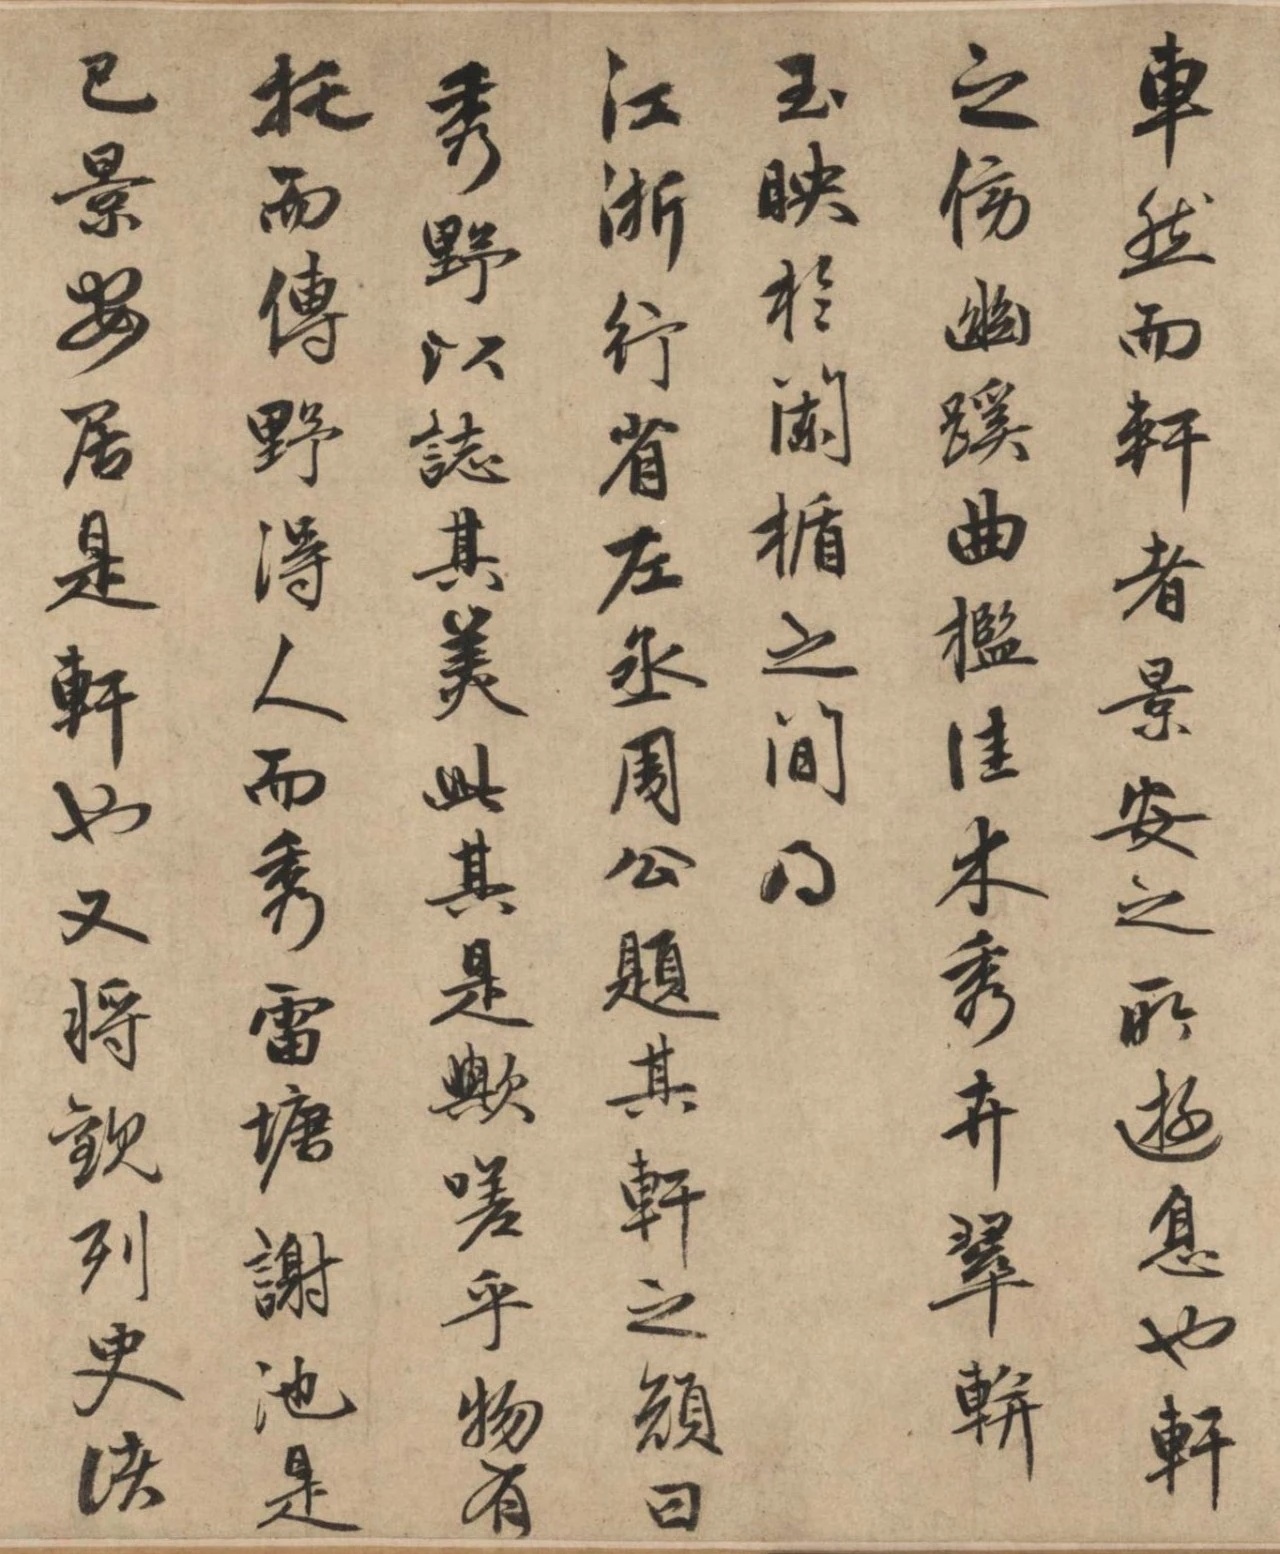 車然而軒者景安之所遊息也軒
之傍幽蹊曲檻佳木秀卉翠軿
玉映於闌楯之間乃
江浙行省左丞周公題其軒之顔曰
秀野以誌其美此其是歟嗟乎物有
托而傳野得人而秀雷塘謝池是
已景安居是軒也又將觀列史侯